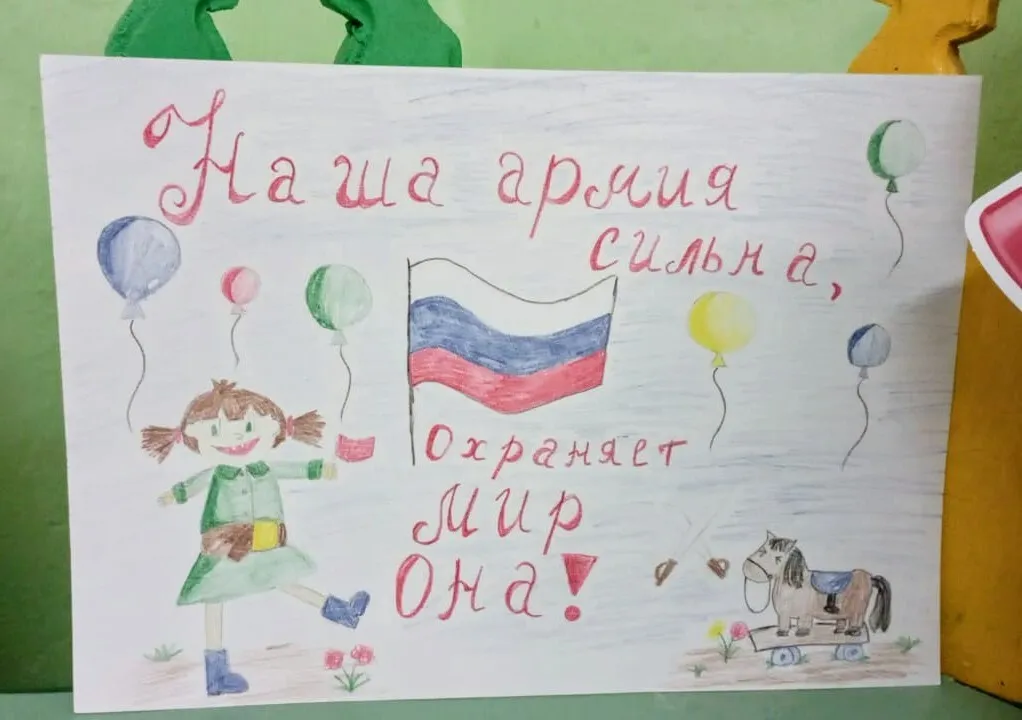 Наша армия
сильна,
Охраняет
мир
Она!